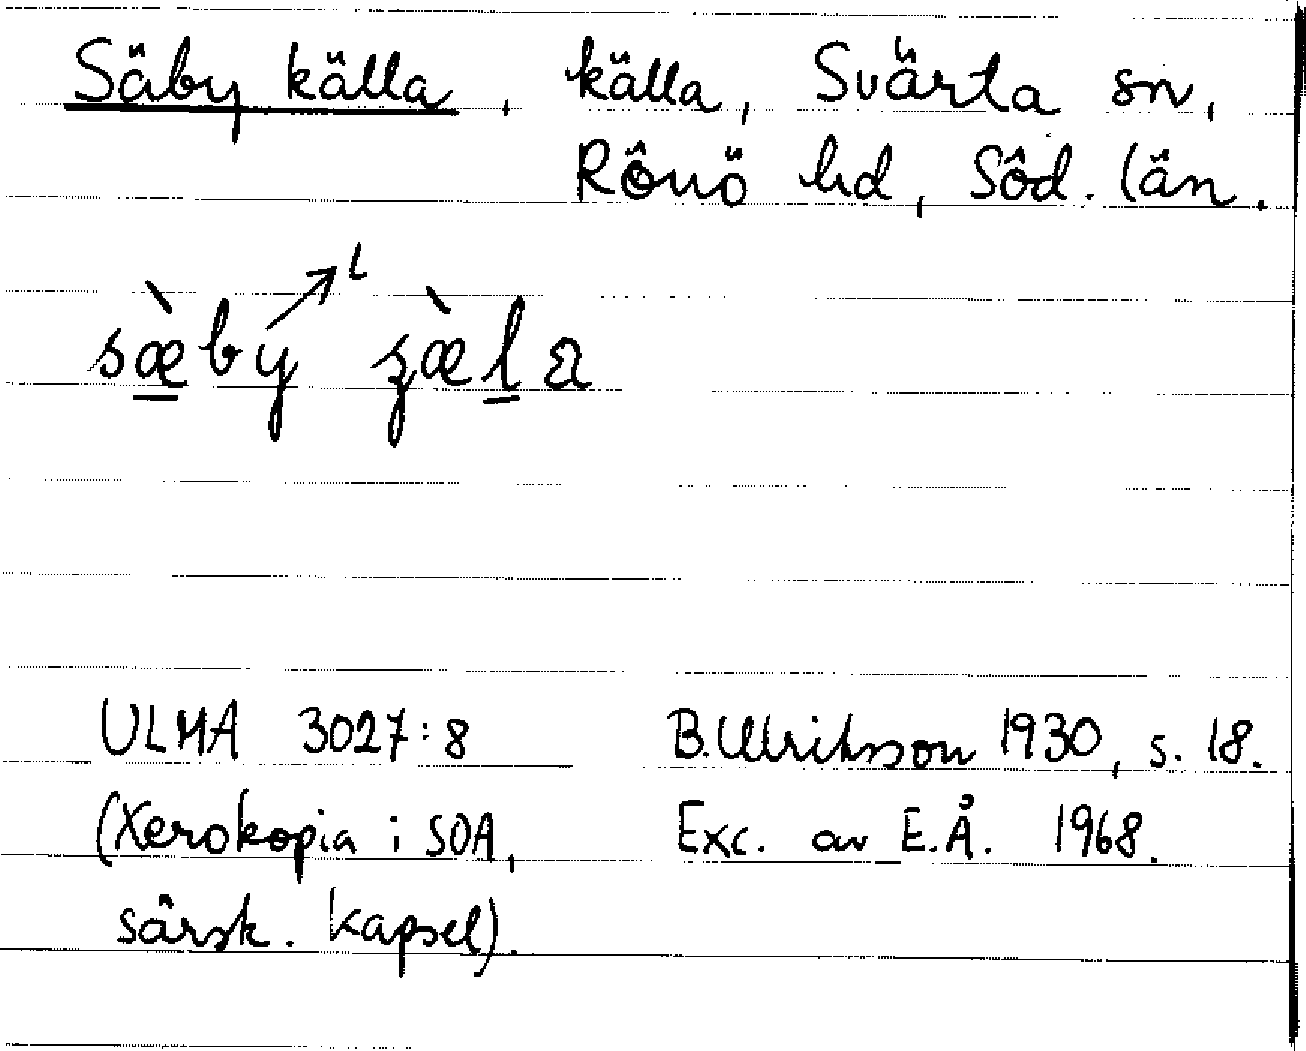 Säby källa, källa, Svärta sn,
Rönö hd, Söd. län.
sæ̀by ʐæ̀la
ULMA 3027:8 B. Ulriksson 1930, s. 18.
(Xerokopia i SOA, Exc. av E.Å. 1968.
särsk. kapsel).